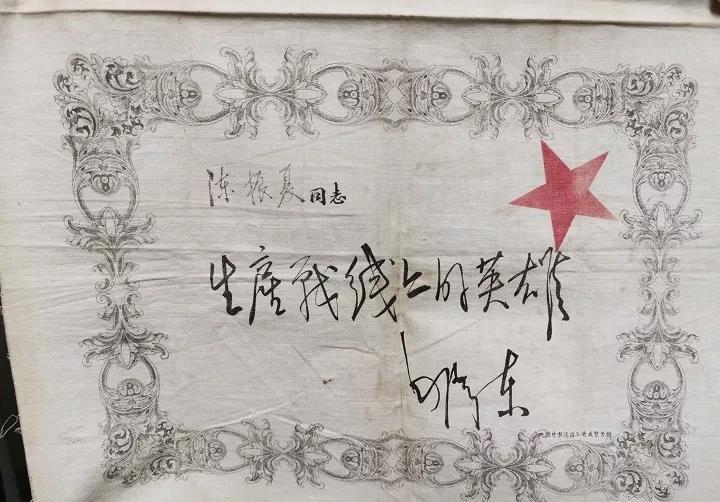 陈振夏同志
生產战线上的英雄
毛泽东